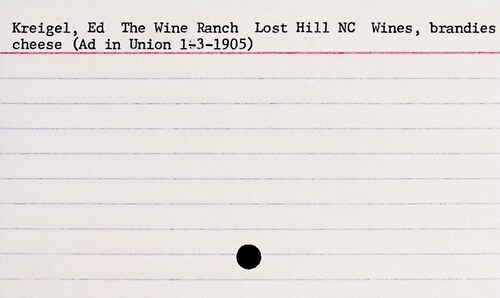 Kreigel, Ed The Wine Ranch Lost Hill NC Wines, brandies
cheese (Ad in Union 1-3-1905)